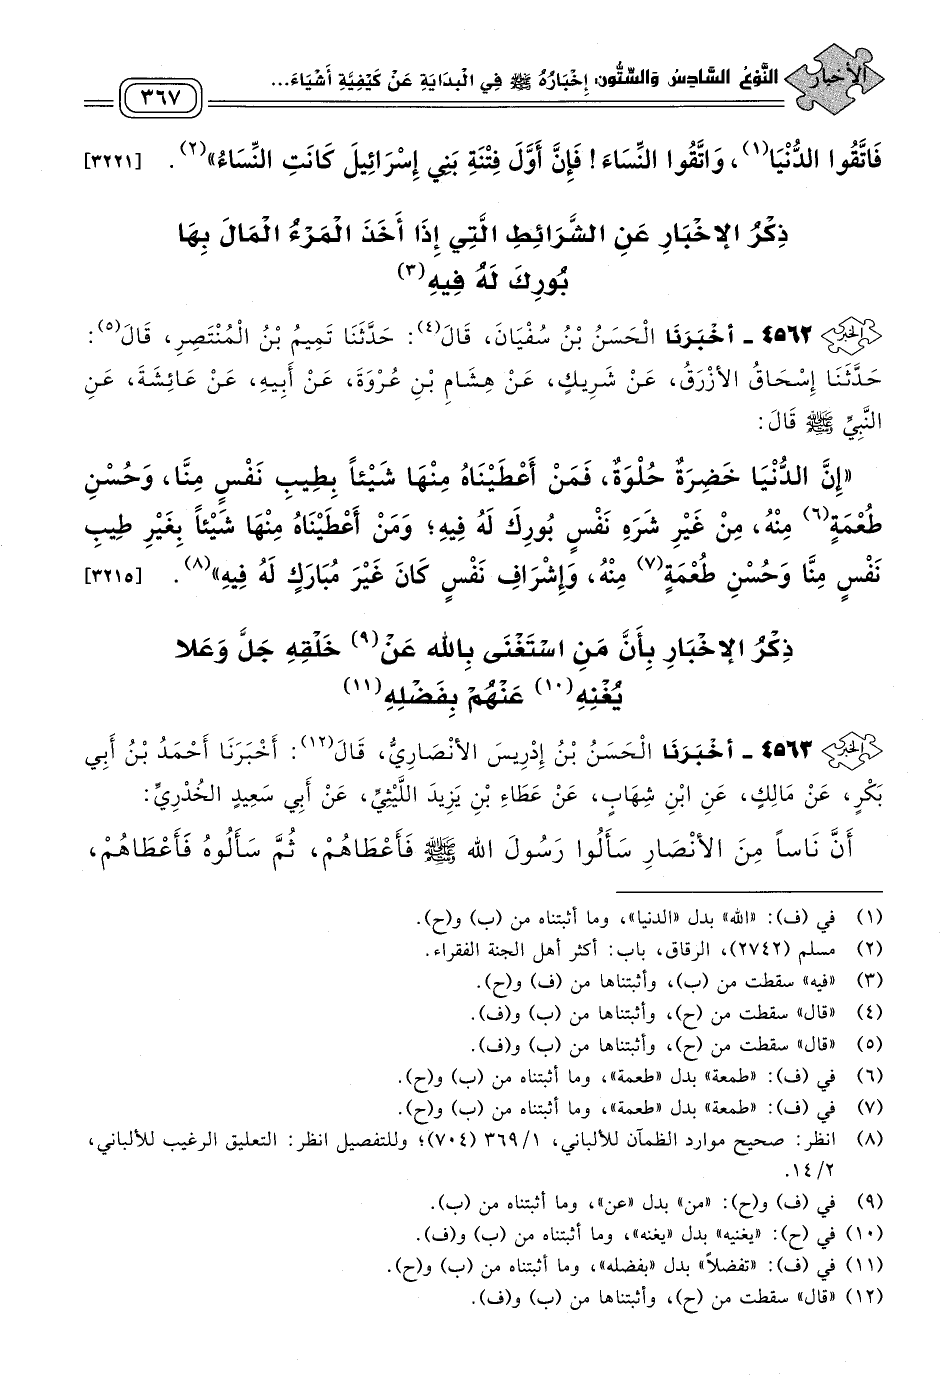 الأخبار
النَّوْعُ السَّادِسُ وَالسِّتُّونَ: إِخْبَارُهُ ﷺ فِي الْبِدَايَةِ عَنْ كَيْفِيَّةِ أَشْيَاءَ...
٣٦٧
فَاتَّقُوا الدُّنْيَا(١)، وَاتَّقُوا النِّسَاءَ! فَإِنَّ أَوَّلَ فِتْنَةِ بَنِي إِسْرَائِيلَ كَانَتِ النِّسَاءُ»(٢). [٣٢٢١]
ذِكْرُ الإِخْبَارِ عَنِ الشَّرَائِطِ الَّتِي إِذَا أَخَذَ الْمَرْءُ الْمَالَ بِهَا
بُورِكَ لَهُ فِيهِ(٣)
الخبر ٤٥٦٢ ـ أخْبَرَنَا الْحَسَنُ بْنُ سُفْيَانَ، قَالَ(٤): حَدَّثَنَا تَمِيمُ بْنُ الْمُنْتَصِرِ، قَالَ(٥):
حَدَّثَنَا إِسْحَاقُ الأَزْرَقُ، عَنْ شَرِيكٍ، عَنْ هِشَامِ بْنِ عُرْوَةَ، عَنْ أَبِيهِ، عَنْ عَائِشَةَ، عَنِ
النَّبِيِّ ﷺ قَالَ:
«إِنَّ الدُّنْيَا خَضِرَةٌ حُلْوَةٌ، فَمَنْ أَعْطَيْنَاهُ مِنْهَا شَيْئاً بِطِيبِ نَفْسٍ مِنَّا، وَحُسْنِ
طُعْمَةٍ(٦) مِنْهُ، مِنْ غَيْرِ شَرَهِ نَفْسٍ بُورِكَ لَهُ فِيهِ؛ وَمَنْ أَعْطَيْنَاهُ مِنْهَا شَيْئاً بِغَيْرِ طِيبِ
نَفْسٍ مِنَّا وَحُسْنِ طُعْمَةٍ(٧) مِنْهُ، وَإِشْرَافِ نَفْسٍ كَانَ غَيْرَ مُبَارَكٍ لَهُ فِيهِ»(٨). [٣٢١٥]
ذِكْرُ الإِخْبَارِ بِأَنَّ مَنِ اسْتَغْنَى بِالله عَنْ(٩) خَلْقِهِ جَلَّ وَعَلا
يُغْنِهِ(١٠) عَنْهُمْ بِفَضْلِهِ(١١)
الخبر ٤٥٦٣ ـ أخْبَرَنَا الْحَسَنُ بْنُ إِدْرِيسَ الأَنْصَارِيُّ، قَالَ(١٢): أَخْبَرَنَا أَحْمَدُ بْنُ أَبِي
بَكْرٍ، عَنْ مَالِكٍ، عَنِ ابْنِ شِهَابٍ، عَنْ عَطَاءِ بْنِ يَزِيدَ اللَّيْثِيِّ، عَنْ أَبِي سَعِيدٍ الْخُدْرِيِّ:
أَنَّ نَاساً مِنَ الأَنْصَارِ سَأَلُوا رَسُولَ الله ﷺ فَأَعْطَاهُمْ، ثُمَّ سَأَلُوهُ فَأَعْطَاهُمْ،
(١) في (ف): «الله» بدل «الدنيا»، وما أثبتناه من (ب) و(ح).
(٢) مسلم (٢٧٤٢)، الرقاق، باب: أكثر أهل الجنة الفقراء.
(٣) «فيه» سقطت من (ب)، وأثبتناها من (ف) و(ح).
(٤) «قال» سقطت من (ح)، وأثبتناها من (ب) و(ف).
(٥) «قال» سقطت من (ح)، وأثبتناها من (ب) و(ف).
(٦) في (ف): «طمعة» بدل «طعمة»، وما أثبتناه من (ب) و(ح).
(٧) في (ف): «طمعة» بدل «طعمة»، وما أثبتناه من (ب) و(ح).
(٨) انظر: صحيح موارد الظمآن للألباني، ١/ ٣٦٩ (٧٠٤)؛ وللتفصيل انظر: التعليق الرغيب للألباني،
٢/ ١٤.
(٩) في (ف) و(ح): «من» بدل «عن»، وما أثبتناه من (ب).
(١٠) في (ح): «يغنيه» بدل «يغنه»، وما أثبتناه من (ب) و(ف).
(١١) في (ف): «تفضلاً» بدل «بفضله»، وما أثبتناه من (ب) و(ح).
(١٢) «قال» سقطت من (ح)، وأثبتناها من (ب) و(ف).